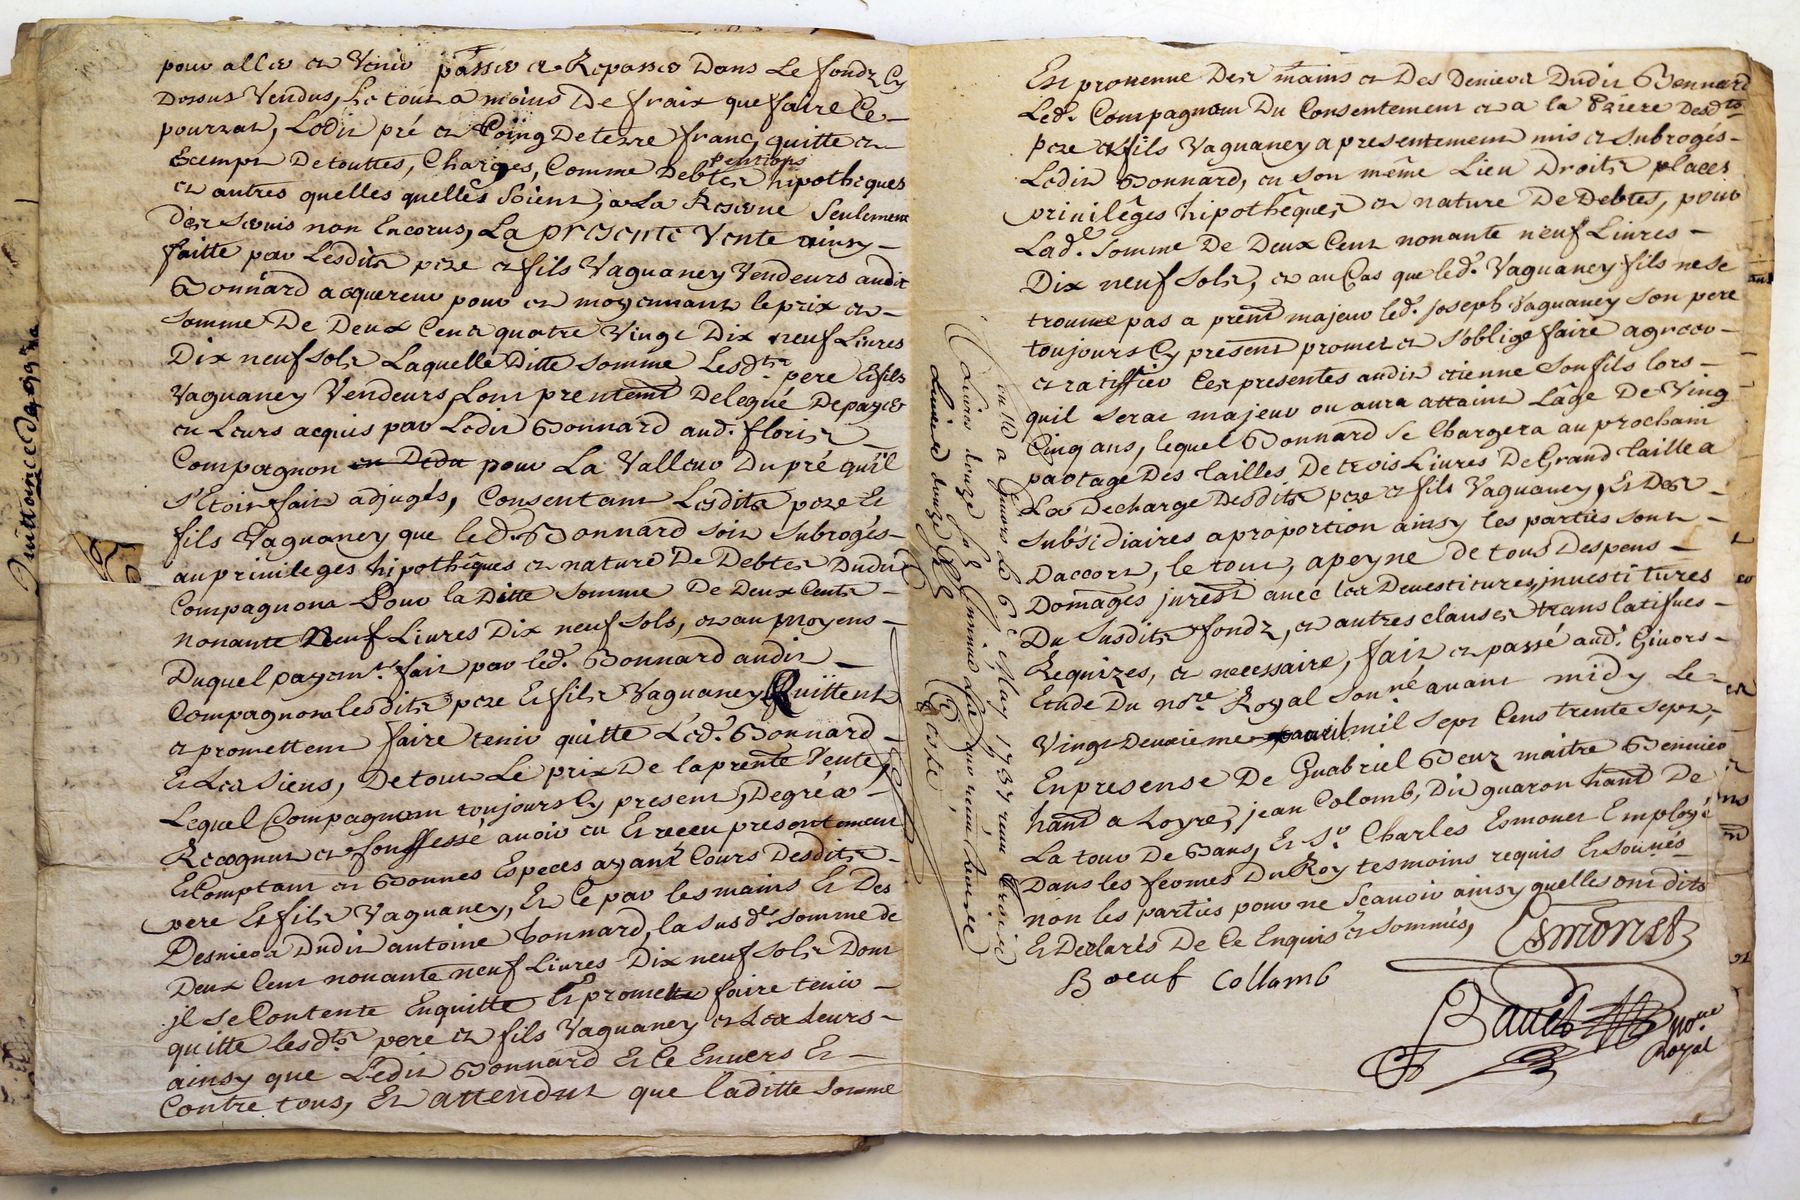 pour aller et Venir passer et Repasser Dans Le fondz Cy
Dessus Vendus, Le tout a moins De fraix que faire Ce
pourrat, Ledit pré et Coing De terre franc, quitte et
Exempt De touttes, Charges, Comme Debtes pentions hipotheques
et autres quelles quelles Soient, a La Reserve Seulement
Des Servis non Encorus, La presente Vente ainsy
faitte par Lesdits pere et fils Vaguaney Vendeurs audit
Bonnard acquereur pour et moyennant le prix et
Somme De Deux Cent quatre Vingt Dix neuf Livres
Dix neuf Sols Laquelle Ditte Somme Lesdts pere Et fils
Vaguaney Vendeurs, Lont prentemt Delegué De payer
en Leurs acquis par Ledit Bonnard aud. floris
Compagnon pour La Valleur Du pré qu'il
S'Etoit fait adjugés, Consentant Lesdits pere Et
fils Vaguaney que led. Bonnard Soit Subrogés
au privileges hipothêques et nature De Debtes Dudit
Compagnon Pour la Ditte Somme De Deux Cents
nonante Neuf Livres Dix neuf Sols, et au moyens
Duquel payemt. fait par led. Bonnard audit
Compagnon lesdits pere Et fils Vaguaney Quittent
et promettent faire tenir quitte Led. Bonnard
Et Les Siens, De tout Le prix De la prente Vente,
Lequel Compagnon toujours Cy present, De gré a
Recognut et Confessé avoir eu Et receu presentement
Et Comptant et Bonnes Especes ayant Cours Desdits
pere Et fils Vaguaney, Et Ce par les mains Et Des
Desniers Dudit antoine bonnard, la susde Somme de
Deux Cent nonante neuf Livres Dix neuf Sols Dont
jl Se Contente Enquitte Et promette faire tenir
quitte lesdts pere et fils Vaguaney et Les Leurs
ainsy que Ledit Bonnard Et Ce Envers Et
Contre tous, Et attendut que laditte Somme
Est provenue Des mains et Des Deniers Dudit Bonnard
Led. Compagnon Du Consentement et a la Priere Desdts
pere et fils Vaguaney a presentement mis et Subrogés
Ledit Bonnard, en Son même Lieu Droits places
privilêges hipothêques et nature De Debtes, pour
Lade Somme De Deux Cent nonante neuf Livres
Dix neuf Sols, et au Cas que led. Vaguaney fils ne Se
trouve pas a prent majeur led. joseph Vaguaney Son pere
toujours Cy present promet et S'oblige faire agreer
et ratiffier Ces presentes audit etienne Son fils lors
quil Serat majeur ou aura attaint Lâge De Ving
Cinq ans, lequel Bonnard Se Chargera au prochain
partage Des tailles De trois Livres De Grand taille a
La Decharge Desdits pere et fils Vaguaney, Et Des
Subsidiaires a proportion ainsy les parties Sont
Daccort, le tout, apeyne De tous Despens
Domages jurest avec les Devestitures, jnvestitures
Du Susdits fondz, et autres clauses translatifues
Requizes, et necessaire, fait et passé aud. Givors
Etude Du nore Royal Sonné avant midy Le
Vingt Deuxieme avril mil Sept Cens trente Sept,
En presense De Guabriel Beuz maitre Bennier
hant a Loyre, jean Colomb, Dit guaron hant De
La tour De Bans, Et Sr Charles Esmonet Employé
Dans les fermes Du Roy tesmoins requis Et Sonnés
non les parties pour ne Scavoir ainsy quelles ont dits
Et Declarés De Ce Enquis et Sommés,
Esmonet
Boeuf Collomb
noue
Royal
a Givors le 6e May 1737 reçu treize
Livres douze Sols
Livres douze Sols
Quittance